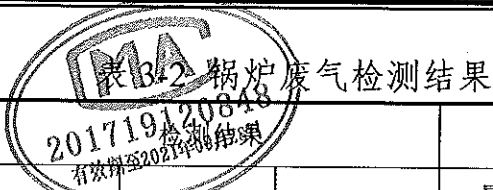 MA
表 3-2 锅炉废气检测结果
201719120848
检测结果
有效期至2021年